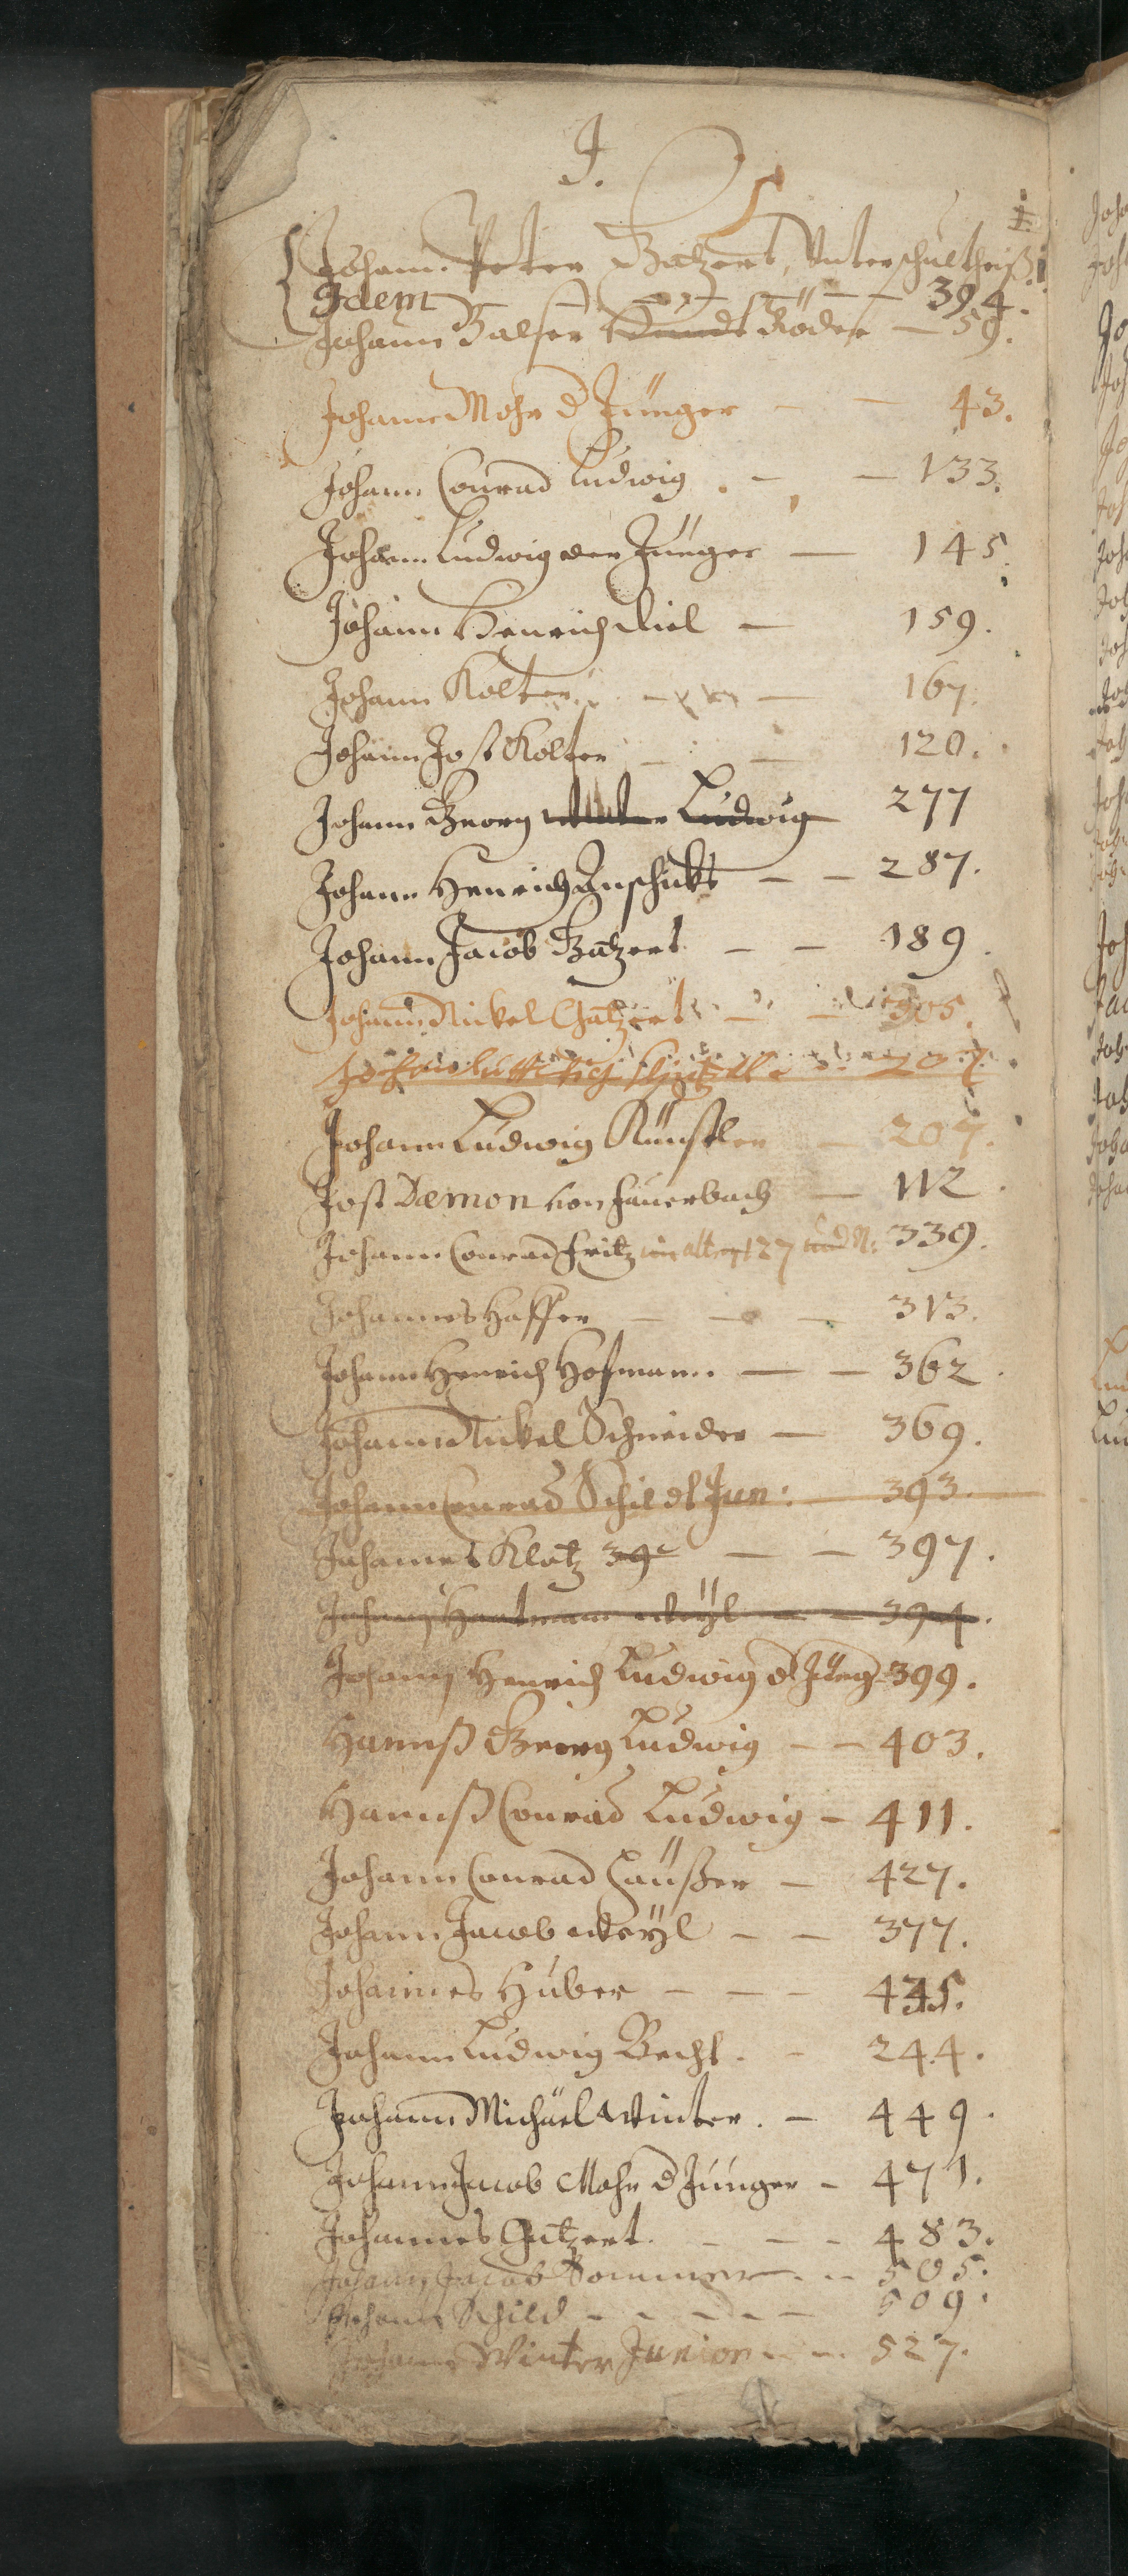 J.
Johann Peter Batzert, Unterschultheiß 1.
Idem — — — — — 394.
Johann Balser Röder — 59.
Johannes Mohr d Jünger — — 43.
Johann Conrad Ludwig . — — 133.
Johann Ludwig der Jünger — 145.
Johann Henrich Kiel — 159.
Johann Kolter — — 167.
Johann Jost Kolter — — 120.
Johann Georg Ludwig 277
Johann Henrich Anschickt — — 287.
Johann Jacob Batzert — — 189.
Johann Nickel Gatzert — — 305.
207.
Johann Ludwig Künstler — 207.
Jost Damon von Fauerbach — 112.
Johann Conrad Fritz 127 339.
Johannes Haffer — — — 313.
Johann Henrich Hofmann. — — 362.
Johann Nickel Schneider — 369.
Johann Conrad Schildt Jun: — 393.
Johannes Klotz 39 — — 397.
Johann Hartmann Weyl — — 394.
Johann Henrich Ludwig d Jüng 399.
Hannß Georg Ludwig — — 403.
Hannß Conrad Ludwig — 411.
Johann Conrad Haußer — 427.
Johann Jacob Weyl — — 377.
Johannes Huber — — — 435.
Johann Ludwig Becht . — 244.
Johann Michael Winter . — 449.
Johann Jacob Mohr d Junger — 471.
Johannes Gatzert. — — — 483.
Johann Jacob Sommer — — 505.
Johann Schild — — — — — 509.
Johann Winter Junior — — 527.